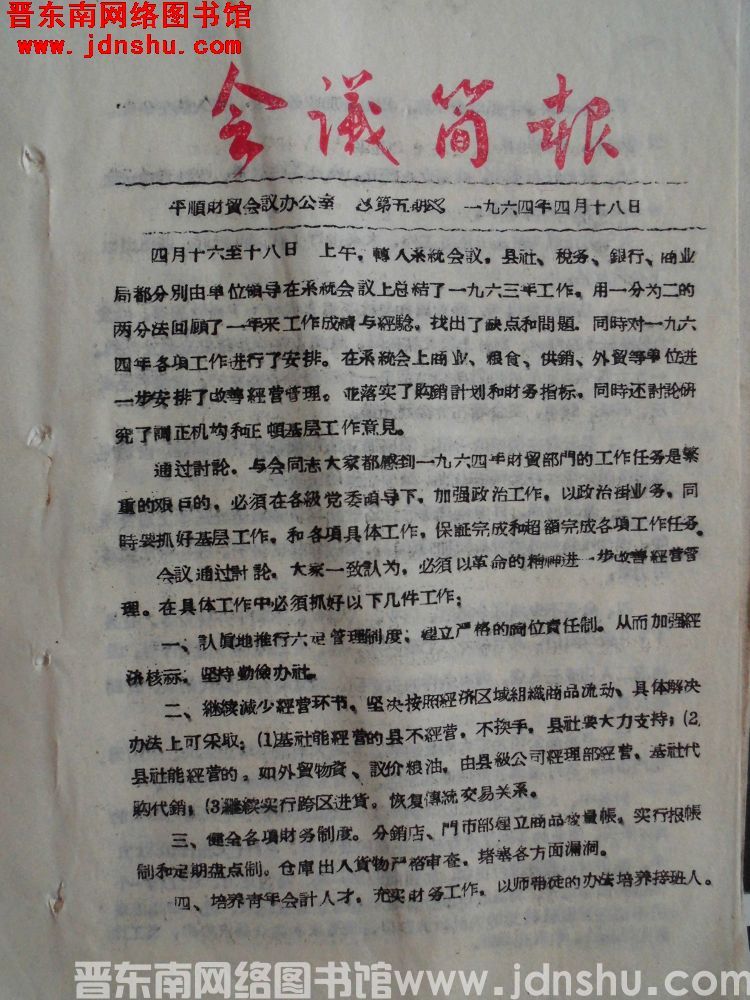 晋东南网络图书馆
www.jdnshu.com
会议简報
平順財貿会议办公室 第五期 一九六四年四月十八日
四月十六至十八日 上午，轉入系統会议。县社、税务、銀行、商业
局都分別由单位領导在系統会议上总結了一九六三年工作。用一分为二的
两分法回顾了一年来工作成績与經驗，找出了缺点和問題．同時对一九六
四年各項工作进行了安排。在系統会上商业、粮食、供銷、外貿等单位进
一步安排了改善經营管理。並落实了购銷計划和財务指标。同時还討論研
究了調正机构和正頓基层工作意見。
通过討論。与会同志大家都感到一九六四年財貿部門的工作任务是繁
重的艰巨的，必須在各級党委領导下，加强政治工作，以政治掛业务，同
時要抓好基层工作，和各項具体工作，保証完成和超額完成各項工作任务。
会议通过討論，大家一致認为，必須以革命的精神进一步改善經营管
理。在具体工作中必須抓好以下几件工作；
一、認眞地推行六定管理制度；建立严格的崗位責任制。从而加强經
济核祘，坚持勤儉办社。
二、継续減少經营环节。坚决按照經济区域組織商品流动、具体解决
办法上可采取；(1)基社能經营的县不經营，不换手，县社要大力支持；(2)
县社能經营的。如外貿物資、議价粮油，由县級公司經理部經营，基社代
购代銷；(3)継续实行跨区进貨，恢复傳統交易关系。
三、健全各項財务制度。分銷店、門市部建立商品数量帳，实行报帳
制和定期盘点制。仓庫出入貨物严格审查，堵塞各方面漏洞。
四、培养青年会計人才，充实財务工作，以师帶徒的办法培养接班人。
晋东南网络图书馆www.jdnshu.com